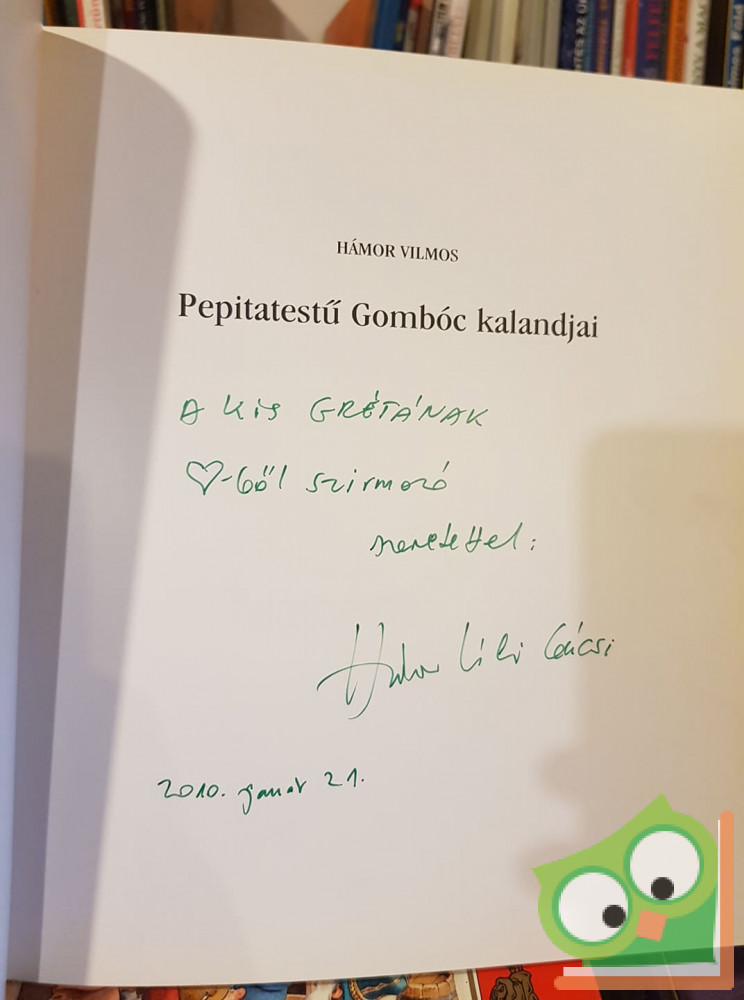 HÁMOR VILMOS
Pepitatestű Gombóc kalandjai
A KIS GRÉTÁNAK
♡-ből szirmozó
szeretettel:
Hámor Vili bácsi
2010. január 21.